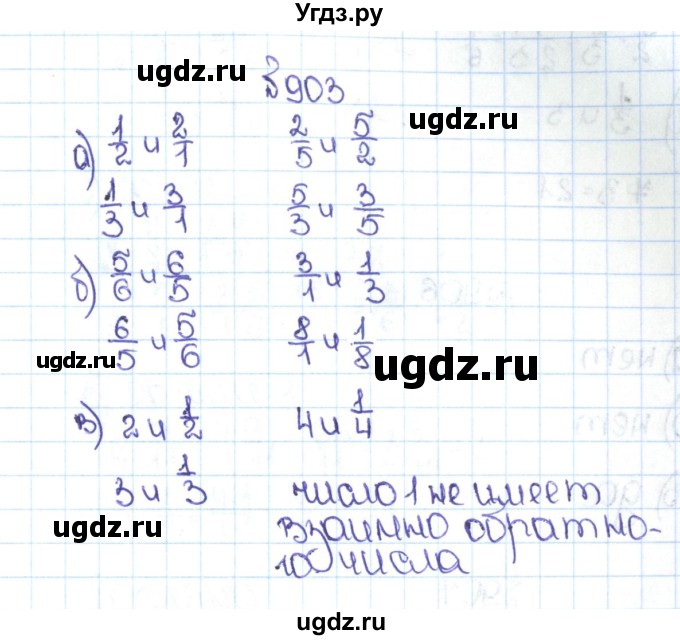 Угдз.ру
ugdz.ru
№903
ugdz.ru
а) 1/2 и 2/1 2/5 и 5/2
1/3 и 3/1 5/3 и 3/5
б) 5/6 и 6/5 3/1 и 1/3
6/5 и 5/6 8/1 и 1/8
ugdz.ru
ugdz.ru
в) 2 и 1/2 4 и 1/4
3 и 1/3 число 1 не имеет
взаимно обратно-
го числа
ugdz.ru
ugdz.ru
ugdz.ru